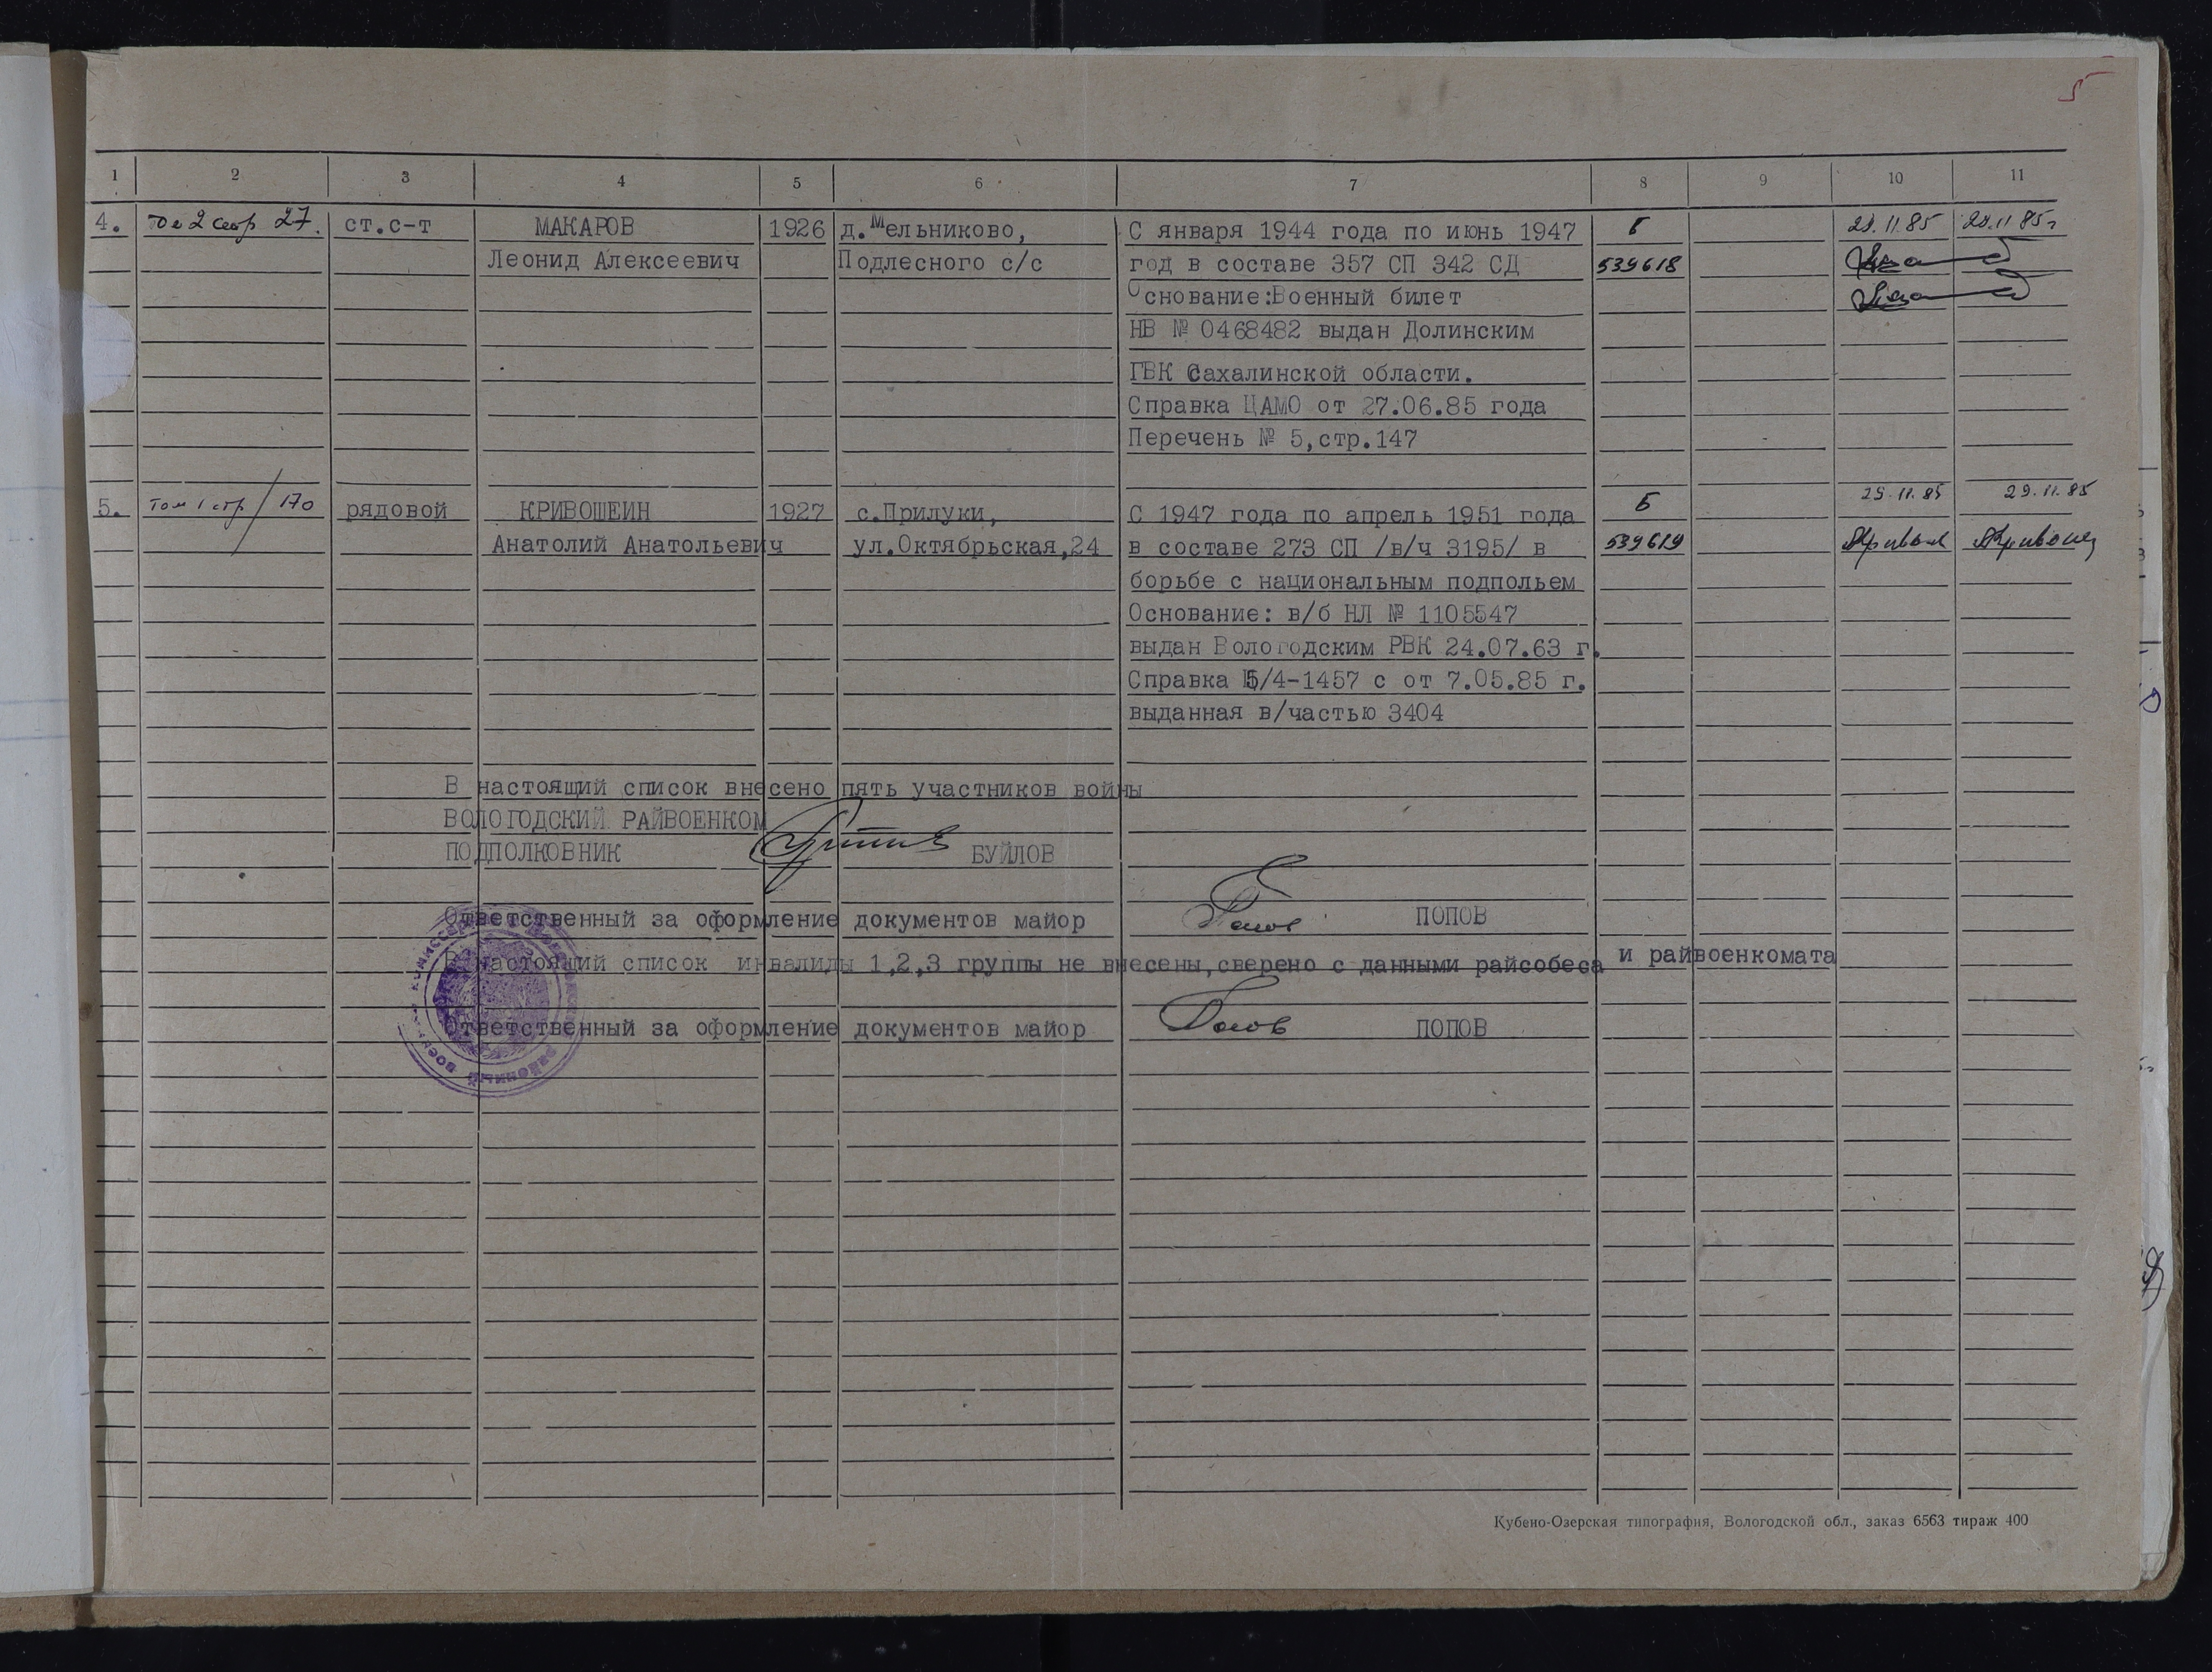 5
1 2 3 4 5 6 7 8 9 10 11
4. 2 стр 27. ст.с-т МАКАРОВ 1926 д.Мельниково, С января 1944 года по июнь 1947 Б 29.11.85 29.11.85г
Леонид Алексеевич Подлесного с/с год в составе 357 СП 342 СД 539618
Основание:Военный билет
НВ № 0468482 выдан Долинским
ГВК Сахалинской области.
Справка ЦАМО от 27.06.85 года
Перечень № 5,стр.147
5. Том 1 стр / 170 рядовой КРИВОШЕИН 1927 с.Прилуки, С 1947 года по апрель 1951 года Б 29.11.85 29.11.85
Анатолий Анатольевич ул.Октябрьская,24 в составе 273 СП /в/ч 3195/ в 539619
борьбе с национальным подпольем
Основание: в/б НЛ № 1105547
выдан Вологодским РВК 24.07.63 г.
Справка 5/4-1457 с от 7.05.85 г.
выданная в/частью 3404
В настоящий список внесено пять участников войны
ВОЛОГОДСКИЙ РАЙВОЕНКОМ
ПОДПОЛКОВНИК БУЙЛОВ
Ответственный за оформление документов майор Попов ПОПОВ
В настоящий список инвалиды 1,2,3 группы не внесены,сверено с данными райсобеса и райвоенкомата
Ответственный за оформление документов майор Попов ПОПОВ
Кубено-Озерская типография, Вологодской обл., заказ 6563 тираж 400